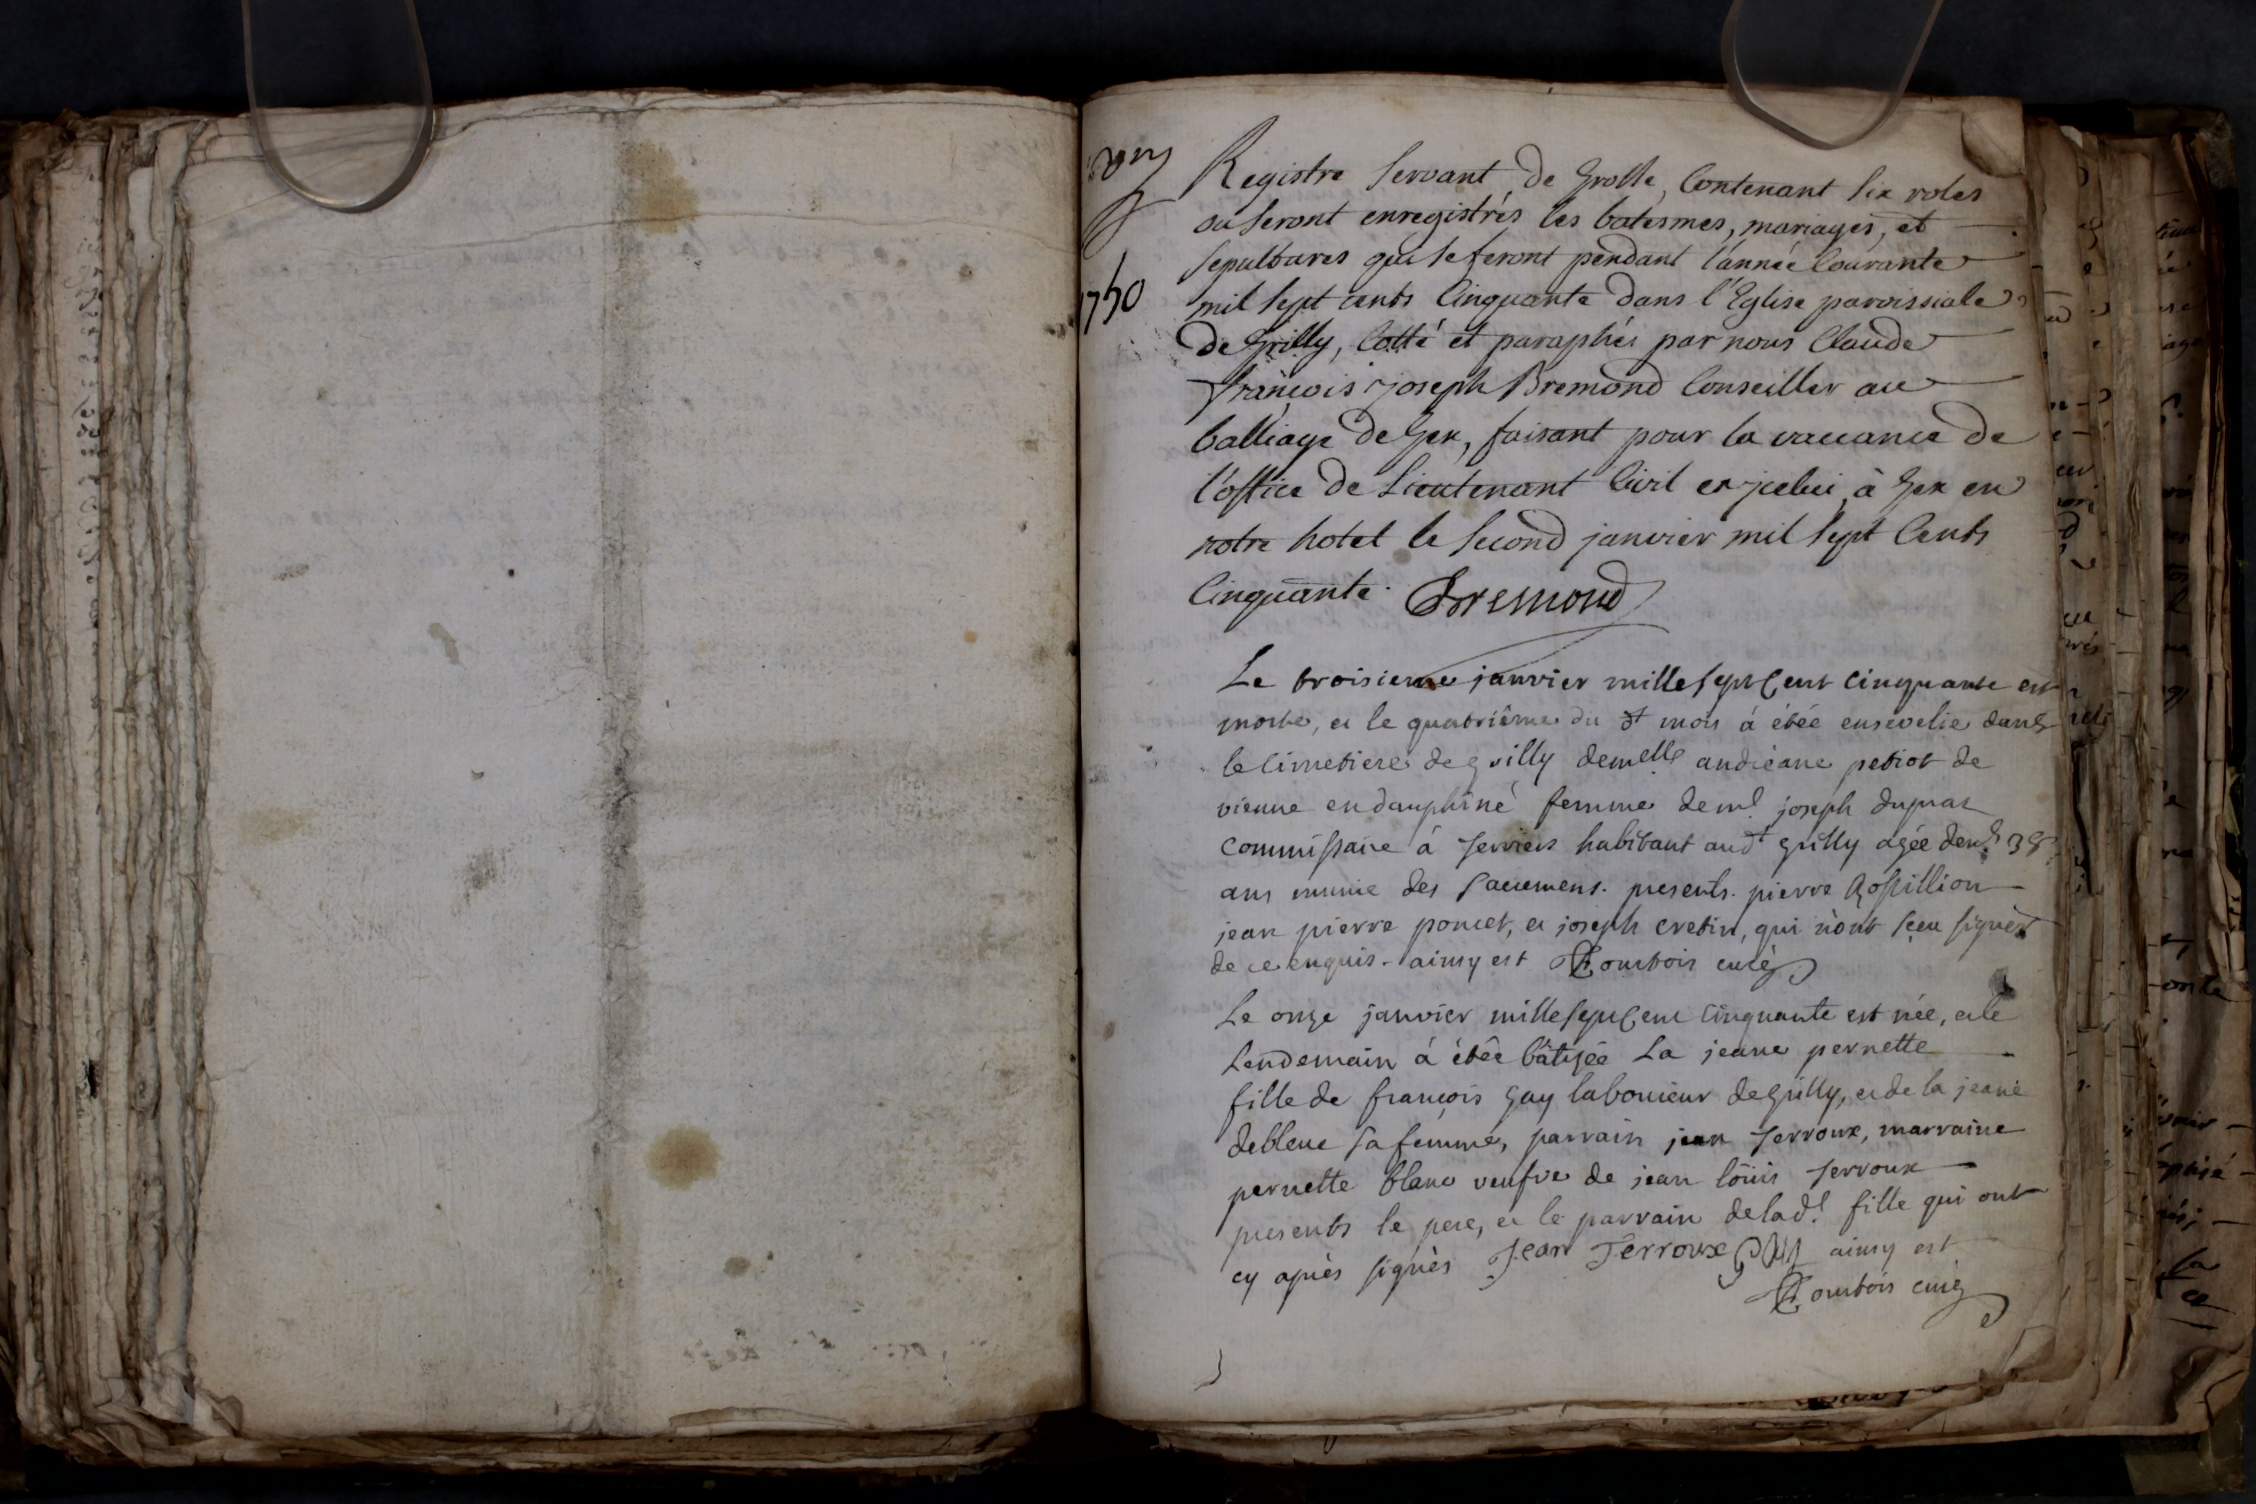 1750
Registre servant de Grosse, Contenant six roles
ou seront enregistrés les batesmes, mariages, et
sepultures qui se feront pendant l'année Courante
mil sept cents Cinquante dans l'Eglise paroissiale
de Grilly, Cotté et paraphés par nous Claude
françois joseph Bremond Conseiller au
balliage de Gex, faisant pour la vaccance de
l'office de Lieutenant Civil en jcelui, à Gex en
notre hotel le second janvier mil sept Cents
Cinquante. Bremond
Le troisieme janvier mille sept Cent cinquante est
morte, et le quatriême du dt mois á êtée ensevelie dans
le cimetiere de grilly demelle andréane petiot de
vienne en dauphiné femme de mr joseph dupras
commissaire á terriers habitant audt grilly agée denv. 38
ans munie des sacremens. presents. pierre Rossillion
jean pierre poncet, et joseph cretin, qui n'ont sçeu signèr
de ce enquis. ainsy est Combois curé
Le onze janvier mille sept Cent Cinquante est née, et le
Lendemain á êtêe bâtizée La jeane pernette
fille de françois Gay laboureur de Grilly, et de la jeane
debleue sa femme, parrain jean terroux, marraine
pernette blanc veufve de jean loüis terroux
presents le pere, et le parrain de lad. fille qui ont
cy aprés signès Jean Terroux Gay ainsy est
Combois curé